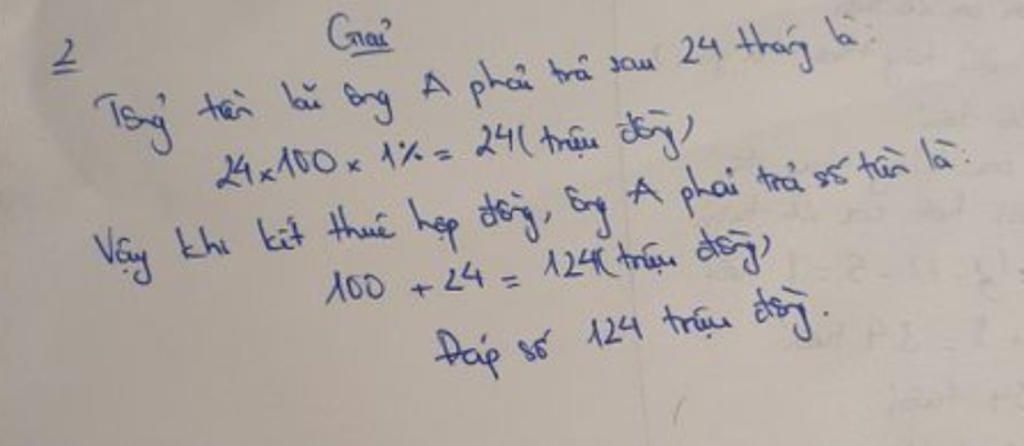 2 Giải
Tổng tiền lãi ông A phải trả sau 24 tháng là:
24 x 100 x 1% = 24 (triệu đồng)
Vậy khi kết thúc hợp đồng, ông A phải trả số tiền là:
100 + 24 = 124 (triệu đồng)
Đáp số 124 triệu đồng.